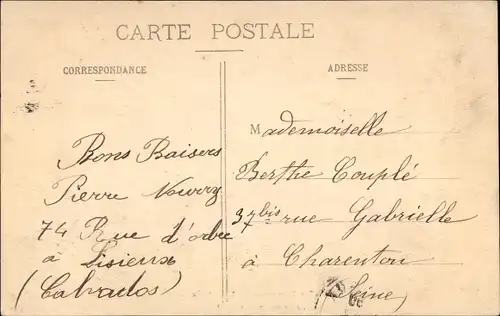 CARTE POSTALE
CORRESPONDANCE
Bons Baisers
Pierre Nourry
74 Rue d'orbec
à Lisieux
(Calvados)
ADRESSE
Mademoiselle
Berthe Couplé
37 bis rue Gabrielle
à Charenton
(Seine)